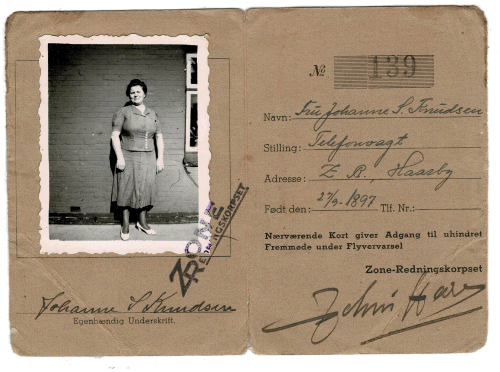 ZONE
REDNINGSKORPSET
Johanne S Knudsen
Egenhændig Underskrift.
№ 139
Navn: Fru Johanne S. Knudsen
Stilling: Telefonvagt
Adresse: Z. R. Haarby
Født den: 27/9-1897 Tlf. Nr.:
Nærværende Kort giver Adgang til uhindret
Fremmøde under Flyvervarsel
Zone-Redningskorpset